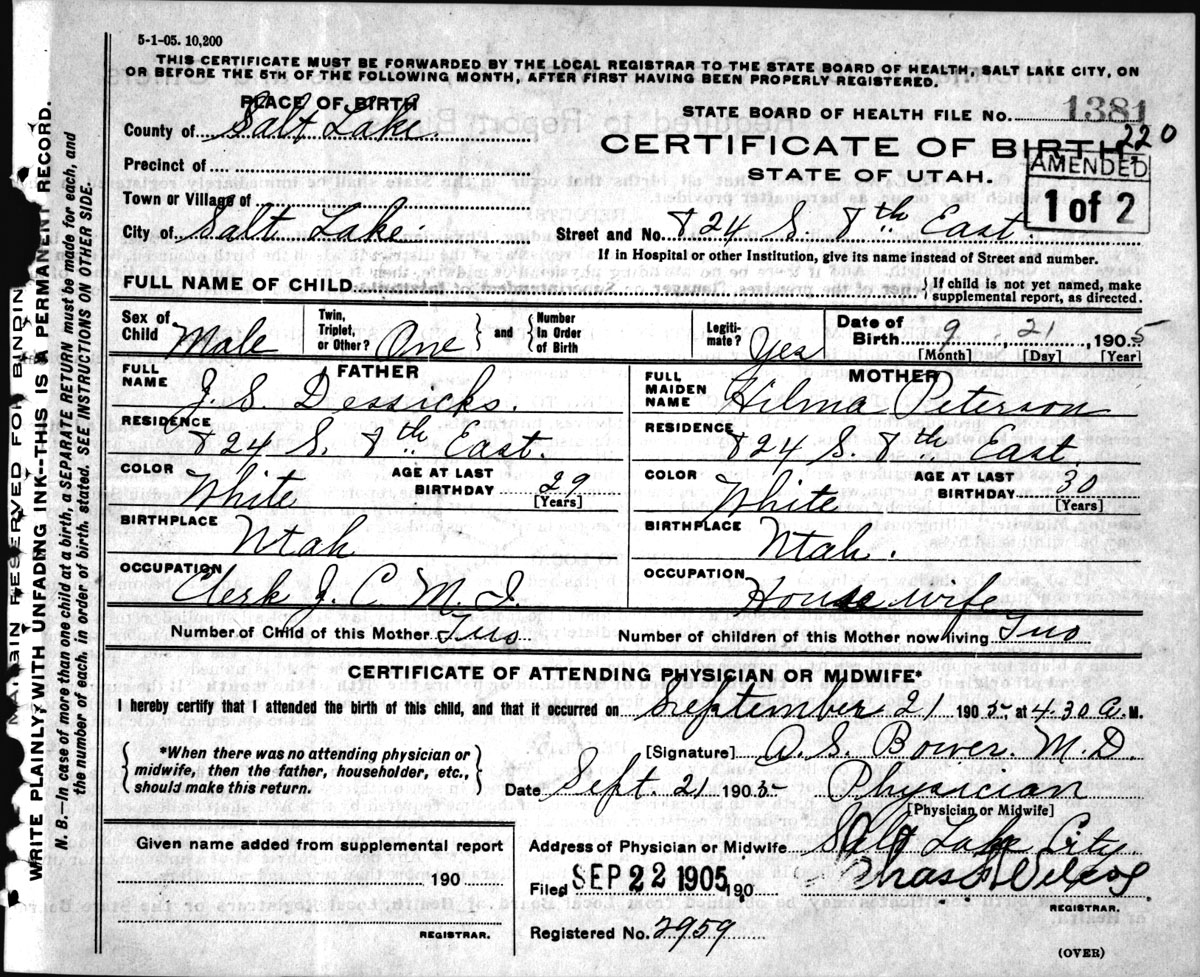 5-1-05. 10,200
THIS CERTIFICATE MUST BE FORWARDED BY THE LOCAL REGISTRAR TO THE STATE BOARD OF HEALTH, SALT LAKE CITY, ON
OR BEFORE THE 5TH OF THE FOLLOWING MONTH, AFTER FIRST HAVING BEEN PROPERLY REGISTERED.
PLACE OF BIRTH
STATE BOARD OF HEALTH FILE NO. 1381
220
County of Salt Lake.
CERTIFICATE OF BIRTH
AMENDED
1 of 2
Precinct of
STATE OF UTAH.
Town or Village of
City of Salt Lake
Street and No. 824 S. 8th East.
If in Hospital or other Institution, give its name instead of Street and number.
FULL NAME OF CHILD
{ If child is not yet named, make supplemental report, as directed.
Sex of Child Male
Twin, Triplet, or Other? One
and { Number In Order of Birth
Legiti- mate? Yes
Date of Birth 9, 21, 1905
[Month] [Day] [Year]
FATHER
FULL NAME J. S. Dessicks.
MOTHER
FULL MAIDEN NAME Hilma Peterson
RESIDENCE 824 S. 8th East.
RESIDENCE 824 S. 8th East.
COLOR White
AGE AT LAST BIRTHDAY 29
[Years]
COLOR White
AGE AT LAST BIRTHDAY 30
[Years]
BIRTHPLACE Utah
BIRTHPLACE Utah.
OCCUPATION Clerk C. M. I.
OCCUPATION House wife
Number of Child of this Mother Two
Number of children of this Mother now living Two
CERTIFICATE OF ATTENDING PHYSICIAN OR MIDWIFE*
I hereby certify that I attended the birth of this child, and that it occurred on September 21 1905, at 4.30 A. M.
{ *When there was no attending physician or midwife, then the father, householder, etc., should make this return. }
[Signature] A. S. Bower. M.D.
Date Sept. 21 1905. Physician
[Physician or Midwife]
Address of Physician or Midwife Salt Lake City
Given name added from supplemental report
190
REGISTRAR.
Filed SEP 22 1905 190
REGISTRAR.
Registered No. 2959
(OVER)
MARGIN RESERVED FOR BINDING
WRITE PLAINLY WITH UNFADING INK--THIS IS A PERMANENT RECORD.
N. B.—In case of more than one child at a birth, a SEPARATE RETURN must be made for each, and
the number of each, in order of birth, stated. SEE INSTRUCTIONS ON OTHER SIDE.